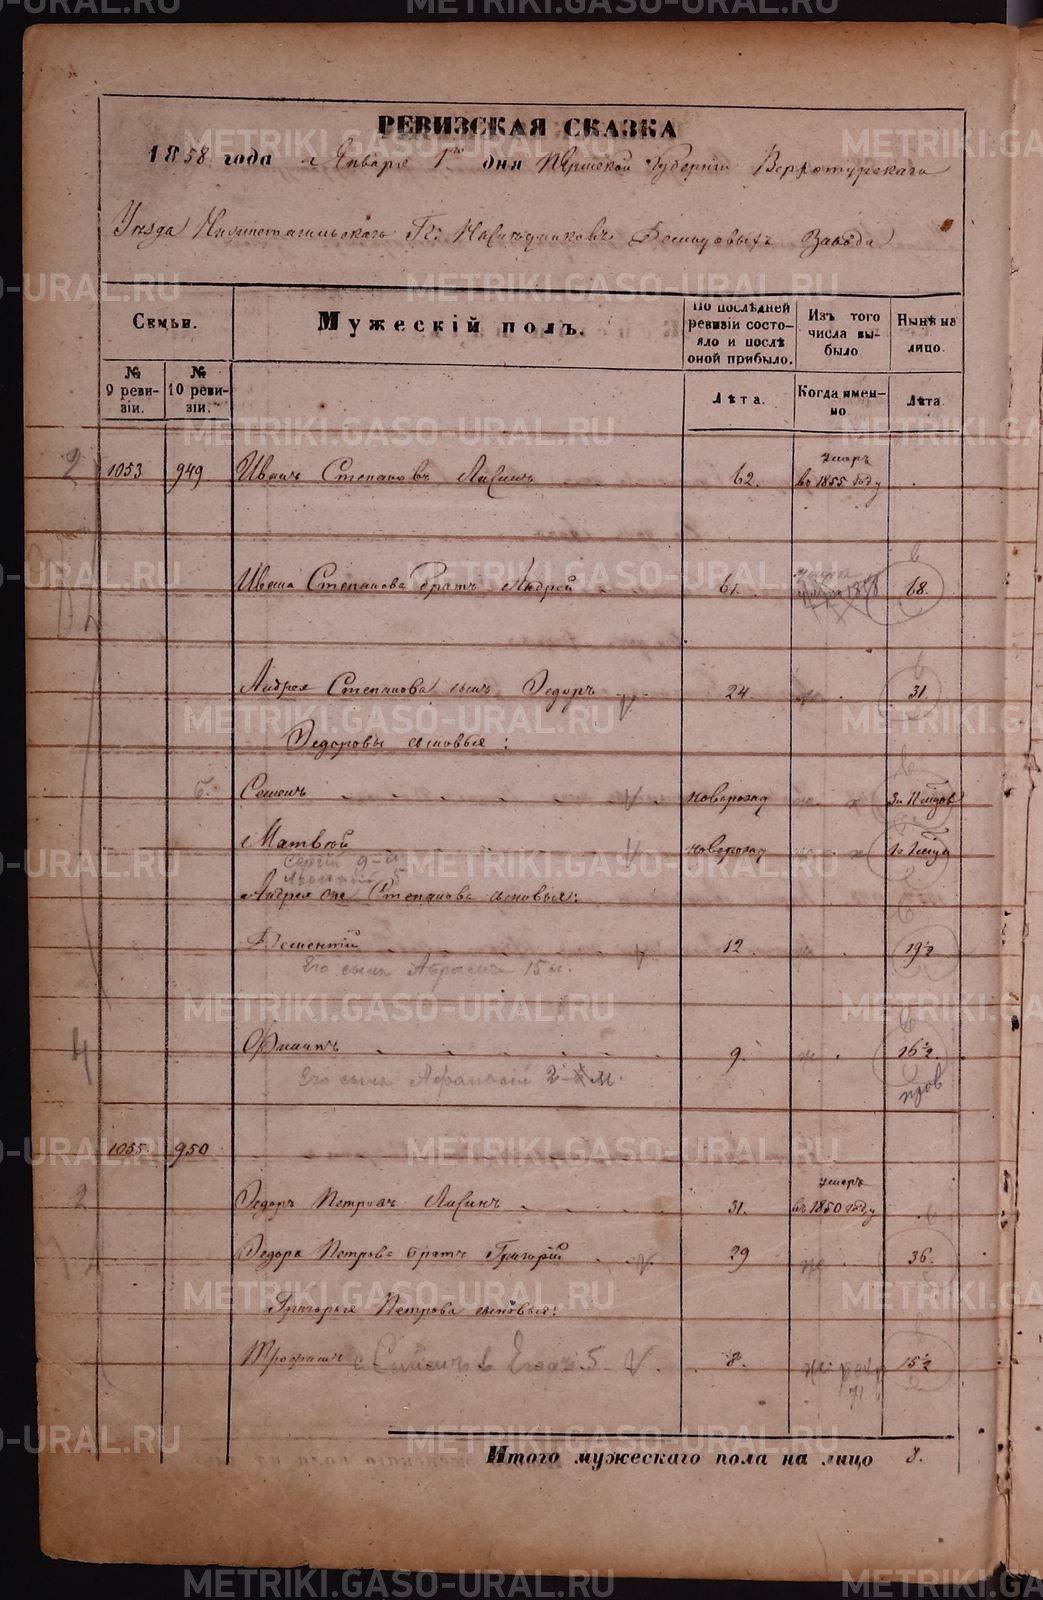 РЕВИЗСКАЯ СКАЗКА
1858 года Января 1го дня Пермской Губерніи Верхотурскаго
Уѣзда Нижнетагильскаго Гг. Наслѣдниковъ Демидовыхъ Завода
Семьи.
Мужескій полъ.
По послѣдней ревизіи состояло и послѣ оной прибыло.
Изъ того числа выбыло
Нынѣ на лицо.
№ 9 ревизіи.
№ 10 ревизіи.
Лѣта.
Когда именно
Лѣта.
2 1053 949 Иванъ Степановъ Лисинъ 62. умеръ въ 1855 году
Ивана Степанова братъ Андрей 61. 1858 68.
Андрея Степанова сынъ Ѳедоръ 24. 31
Ѳедоровы сыновья:
Семенъ новорожд 3
Матвѣй новорожд
Сергѣй 9
Андрея Степанова сыновья:
Дементій 12 19½
Его сынъ Абрамъ 15 м.
4 Филипъ 9. 16½.
Его сынъ Афанасій 2 м.
1055. 950
2 Ѳедоръ Петровъ Лисинъ 31. умеръ въ 1850 году
Ѳедора Петрова братъ Григорій 29 36.
Григорья Петрова сыновья:
Трофимъ Семенъ Егоръ 5 8. 15½
Итого мужескаго пола на лицо 8.
METRIKI.GASO-URAL.RU